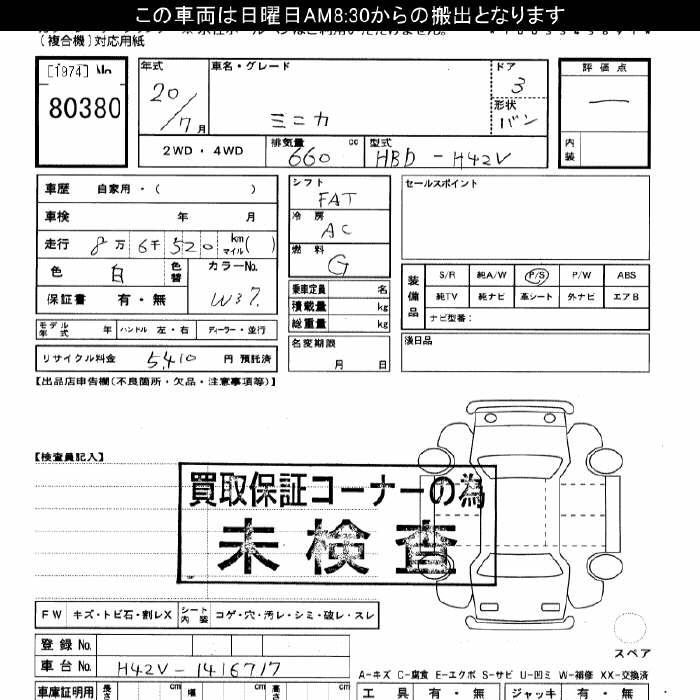 この車両は日曜日AM8:30からの搬出となります
(複合機)対応用紙
[1974] No
80380
年式
20/7月
車名・グレード
ミニカ
ドア
3
形状
バン
評価点
―
内装
2WD・4WD
排気量
660 cc
型式
HBD-H42V
車歴 自家用・( )
車検 年 月
走行 8万6千520 km マイル( )
色 白 色替
カラーNo.
W37.
保証書 有・無
シフト
FAT
冷房
AC
燃料
G
乗車定員 名
積載量 kg
総重量 kg
セールスポイント
装備品
S/R 純A/W P/S P/W ABS
純TV 純ナビ 革シート 外ナビ エアB
ナビ型番:
モデル年式 年 ハンドル 左・右 ディーラー・並行
リサイクル料金 5,410 円 預託済
名変期限
月 日
瑕日品
【出品店申告欄(不良箇所・欠品・注意事項等)】
【検査員記入】
買取保証コーナーの為
未検査
FW キズ・トビ石・割レX シート内装 コゲ・穴・汚レ・シミ・破レ・スレ
スペア
登録No.
車台No. H42V-1416717
A-キズ C-腐食 E-エクボ S-サビ U-凹ミ W-補修 XX-交換済
車庫証明用 長さ cm 幅 cm 高さ cm
工具 有・無 ジャッキ 有・無